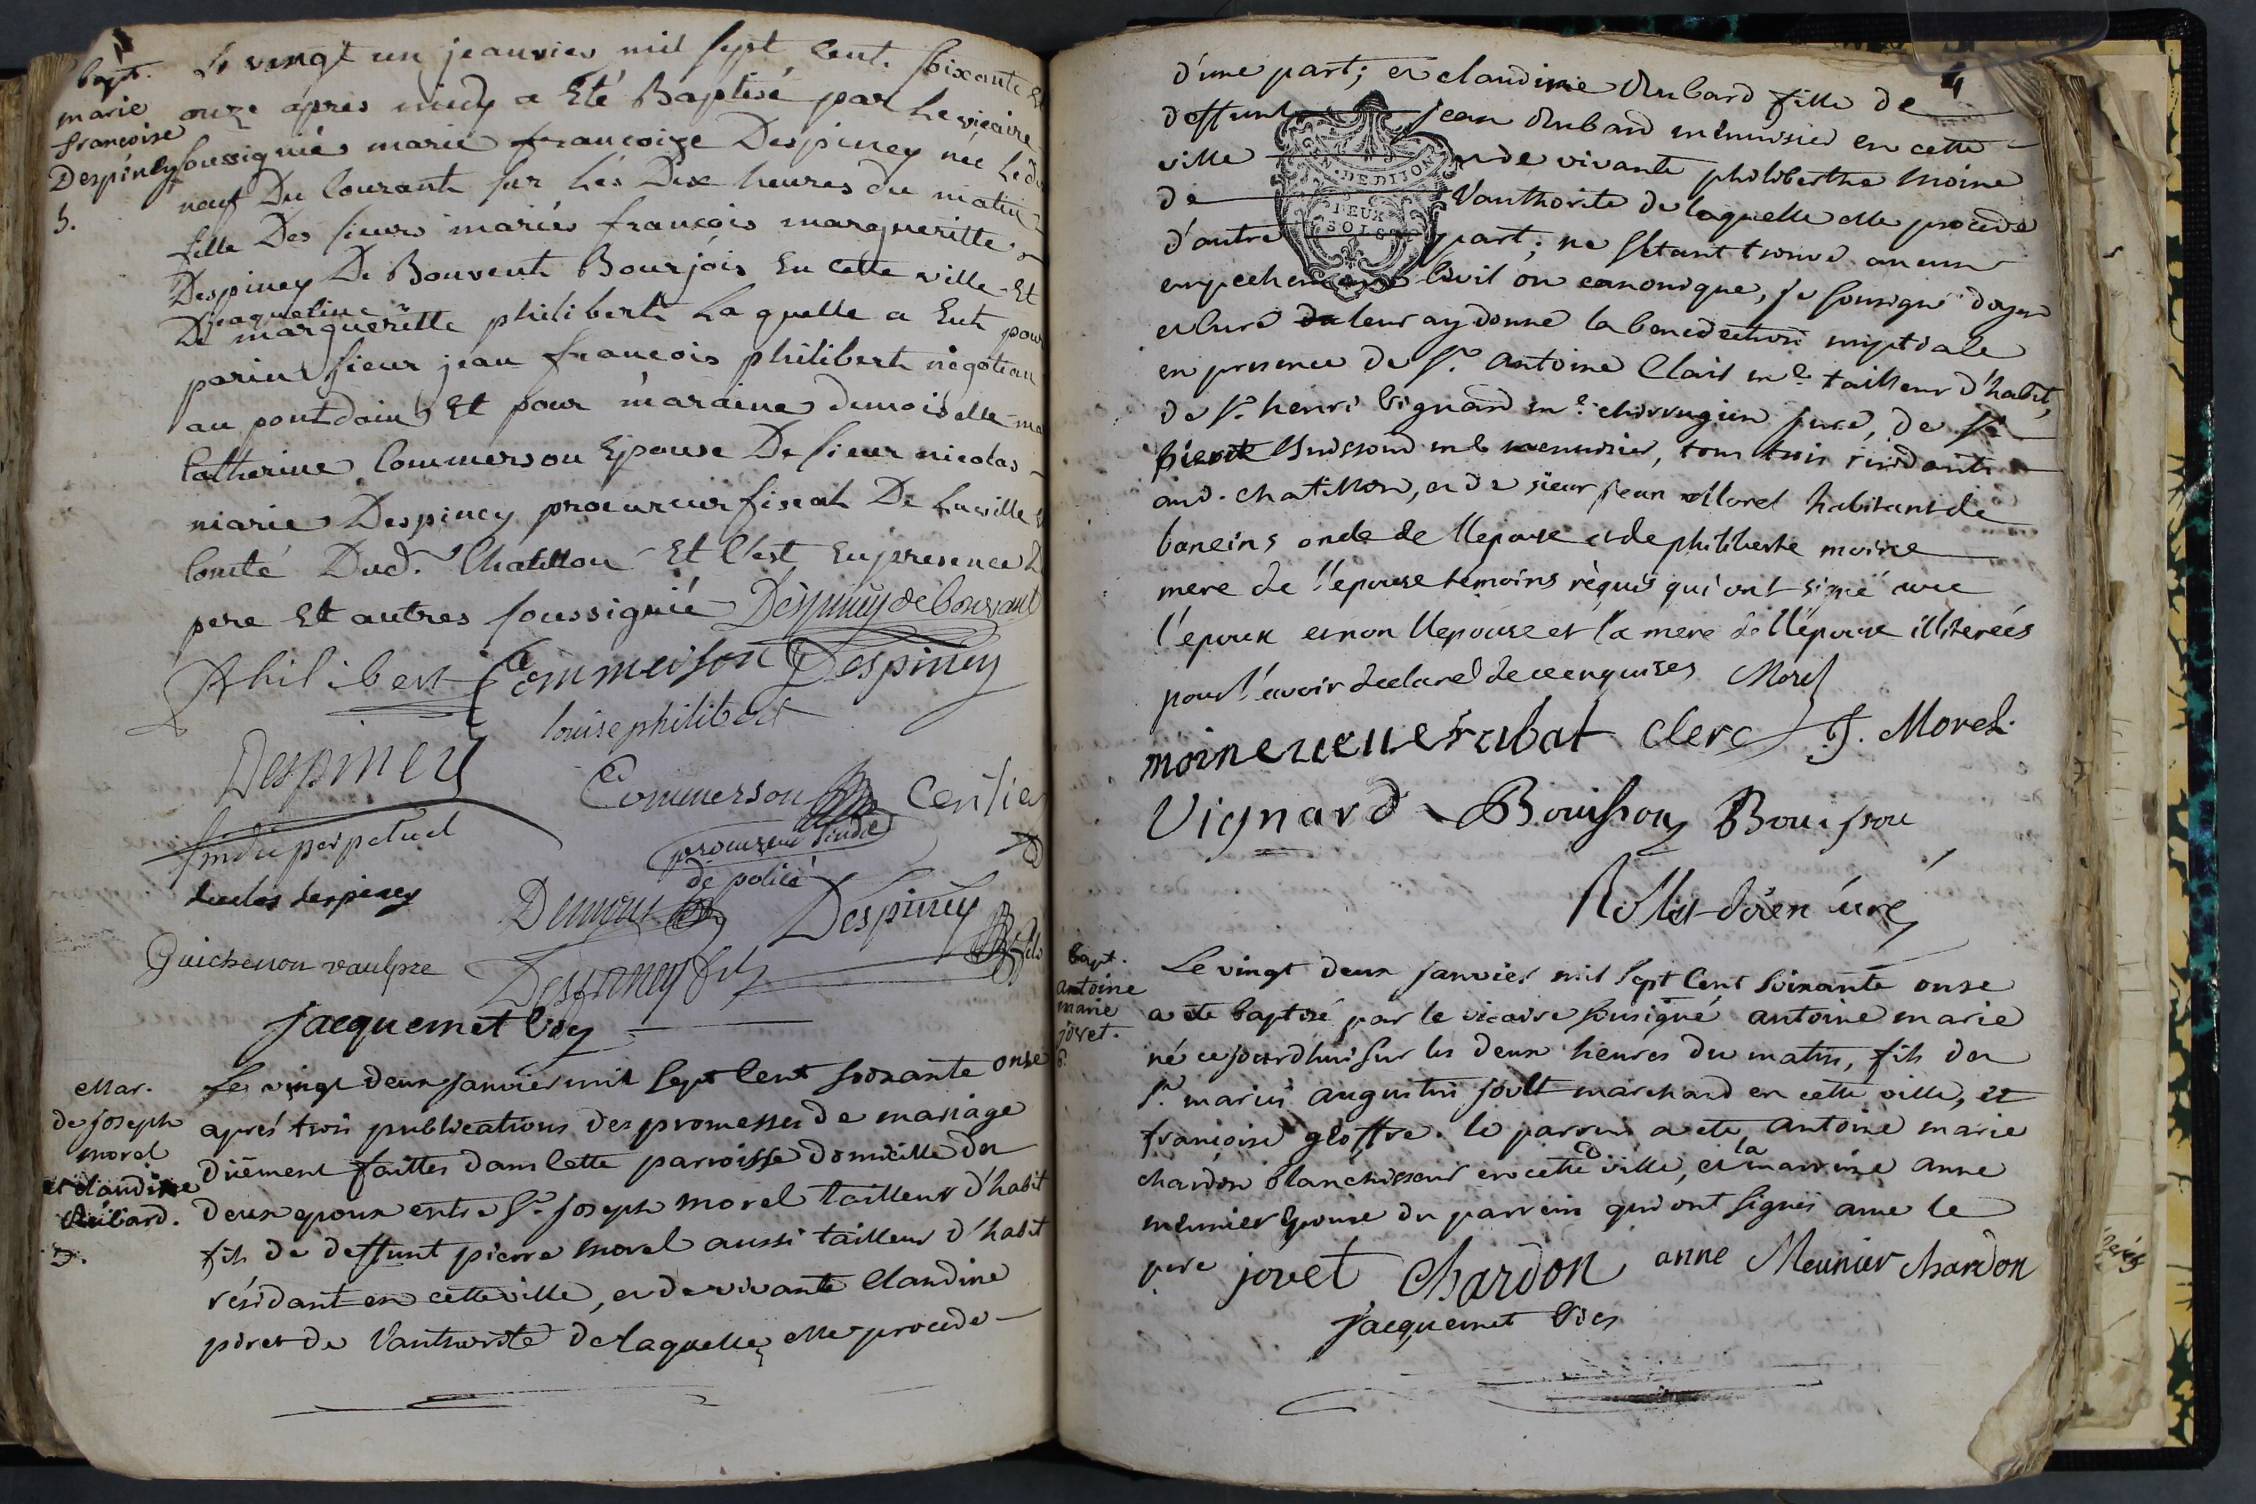 bapt.
marie
francoise
Despiney
5.
Le vingt un jeanvier mil sept cent soixante et
onze apres midy a Eté Baptisé par Le vicaire
soussignié marie francoise Despiney née Le dix
neuf Du Courant sur Les Dix heures du matin
fille Des sieurs mariés françois margueritte
Despiney De Bouvent Bourjois En cette ville Et
jaqueline
De margueritte philibert Laquelle a Eut pour
parin sieur jean françois philibert négotian
au pontdain Et pour maraine demoiselle
Catherine Commerson Epouse De sieur nicolas
marie Despiney procureur fiscal De La ville
Comté Dud. Chatillon Et C'est En presence D
pere Et autres soussignié Despiney de bouvant
Philibert Commerson Despiney
louise philibert
Despiney
Commerson Cerisier
sindic perpetuel
procureur sindic
de police
duclos despiney
Despiney
Guichenon vaulpre Despiney fils
jacquemet vic
Mar.
de joseph
morel
et claudine
Rubard.
Le vingt deux janvier mil sept cent soixante onze
aprés trois publications des promesses de mariage
düement faittes dans cette parroisse domicille des
deux epoux entre Sr. joseph morel tailleur d'habit
fils de deffunt pierre morel aussi tailleur d'habit
résidant en cette ville, et de vivante Claudine
piret de l'authorité de laquelle elle procede
4
d'une part; et claudine Rubard fille de
deffunt jean Rubard menuisier en cette
ville et de vivante philiberthe Moine
de l'authorité de laquelle elle procede
d'autre part; ne s'étant trouvé aucun
GEN. DE DIJON
DEUX
SOLS
empechement civil ou canonique, je sousigné doyen
et curé leur ay donné la benediction nuptiale
en presence de Sr. Antoine Clair me. tailleur d'habit,
de Sr. henri vignard me. chirurgien juré, de Sr.
pierre Buisson me menuisier, tous trois residants
aud. chatillon, et de sieur jean Morel habitant de
baneins oncle de l'epoux et de philiberte moine
mere de l'epouse temoins requis qui ont signé avec
l'epoux et non l'epouse et la mere de l'épouse illiterées
pour l'avoir declaré de ce enquises Morel
moine veuve rubat Clerc J. Morel.
Vignard Bouisson Bouisson
doien curé
bapt.
antoine
marie
jovet.
6.
Le vingt deux janvier mil sept cent soixante onze
a eté baptisé par le vicaire sousigné antoine marie
né cejourdhui sur les deux heures du matin, fils de
Sr. marie augustin jovet marchand en cette ville, et
francoise gloffre. le parrein a eté antoine marie
la
chardon blanchisseur en cette ville, et marrine anne
meunier Epouse du parrein qui ont signés avec le
pere jovet Chardon anne Meunier chardon
jacquemet vic